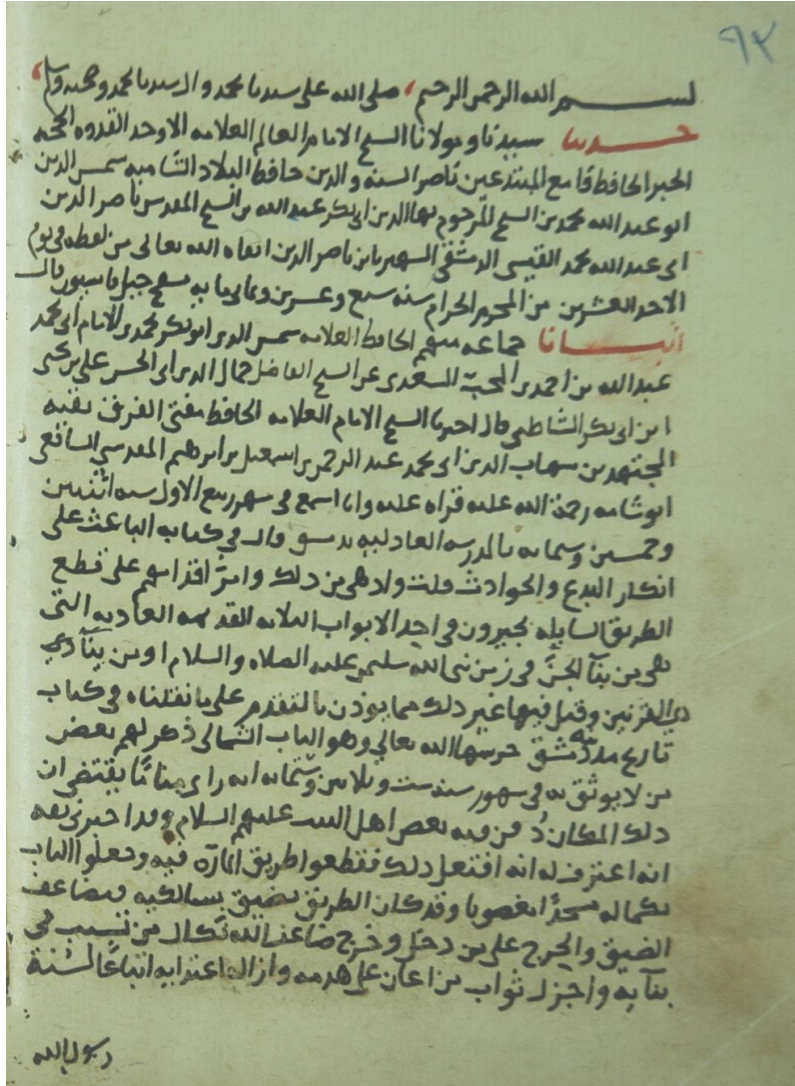 ٩٢
بسم الله الرحمن الرحيم، صلى الله على سيدنا محمد وال سيدنا محمد وصحبه وسلم،
حدثنا سيدنا ومولانا الشيخ الامام العالم العلامه الاوحد القدوه الحجه
الحبر الحافظ قامع المبتدعين ناصر السنه والدين حافظ البلاد الشاميه شمس الدين
ابو عبد الله محمد بن الشيخ المرحوم بها الدين ابي بكر عبد الله بن الشيخ المقدس ناصر الدين
ابي عبد الله محمد القيسي الدمشقي الشهير بابن ناصر الدين ابقاه الله تعالى من لفظه في يوم
الاحد العشرين من المحرم الحرام سنه سبع وعشرين وثماني مايه بسفح جبل قاسيون قال
انبانا جماعه منهم الحافظ العلامه شمس الدين ابو بكر محمد بن الامام ابي محمد
عبد الله بن احمد بن المحب السعدي عن الشيخ الفاضل جمال الدين ابي الحسن علي بن يحيى
ابن ابي بكر الشاطبي قال اخبرنا الشيخ الامام العلامه الحافظ مفتي الفرق بقيه
المجتهدين شهاب الدين ابي محمد عبد الرحمن بن اسمعيل بن ابرهيم المقدسي الشافعي
ابو شامه رحمة الله عليه قراه عليه وانا اسمع في شهر ربيع الاول سنه اثنتين
وخمسين وستمائه بالمدرسه العادليه بدمشق قال في كتابه الباعث على
انكار البدع والحوادث قلت وادهى من ذلك وامرّ اقدامهم على قطع
الطريق السابله بجيرون في احد الابواب الثلاثه القديمه العاديه التي
هي من بنآ الجنّ في زمن نبي الله سليمن عليه الصلاه والسلام او من بنآ ذي
ذي القرنين وقيل فيها غير ذلك مما يوذن بالتقدم على ما نقلناه في كتاب
تاريخ مدينه دمشق حرسها الله تعالى وهو الباب الشمالي ذكر لهم بعض
من لا يوثق به في شهور سنه ست وثلاثين وستمائه انه راى منامًا يقتضي ان
ذلك المكان دُفن فيه بعض اهل البيت عليهم السلام وقد اخبرني ثقه
انه اعترف له انه افتعل ذلك فقطعوا طريق المارّه فيه وجعلوا الباب
بكماله مسجدًا مغصوبا وقد كان الطريق يضيق بسالكيه فتضاعف
الضيق والحرج على من دخل وخرج ضاعف الله نكال من تسبب في
بنآيه واجزل ثواب من اعان على هدمه وازاله اعتدايه اتباعًا لسُنة
رسول الله